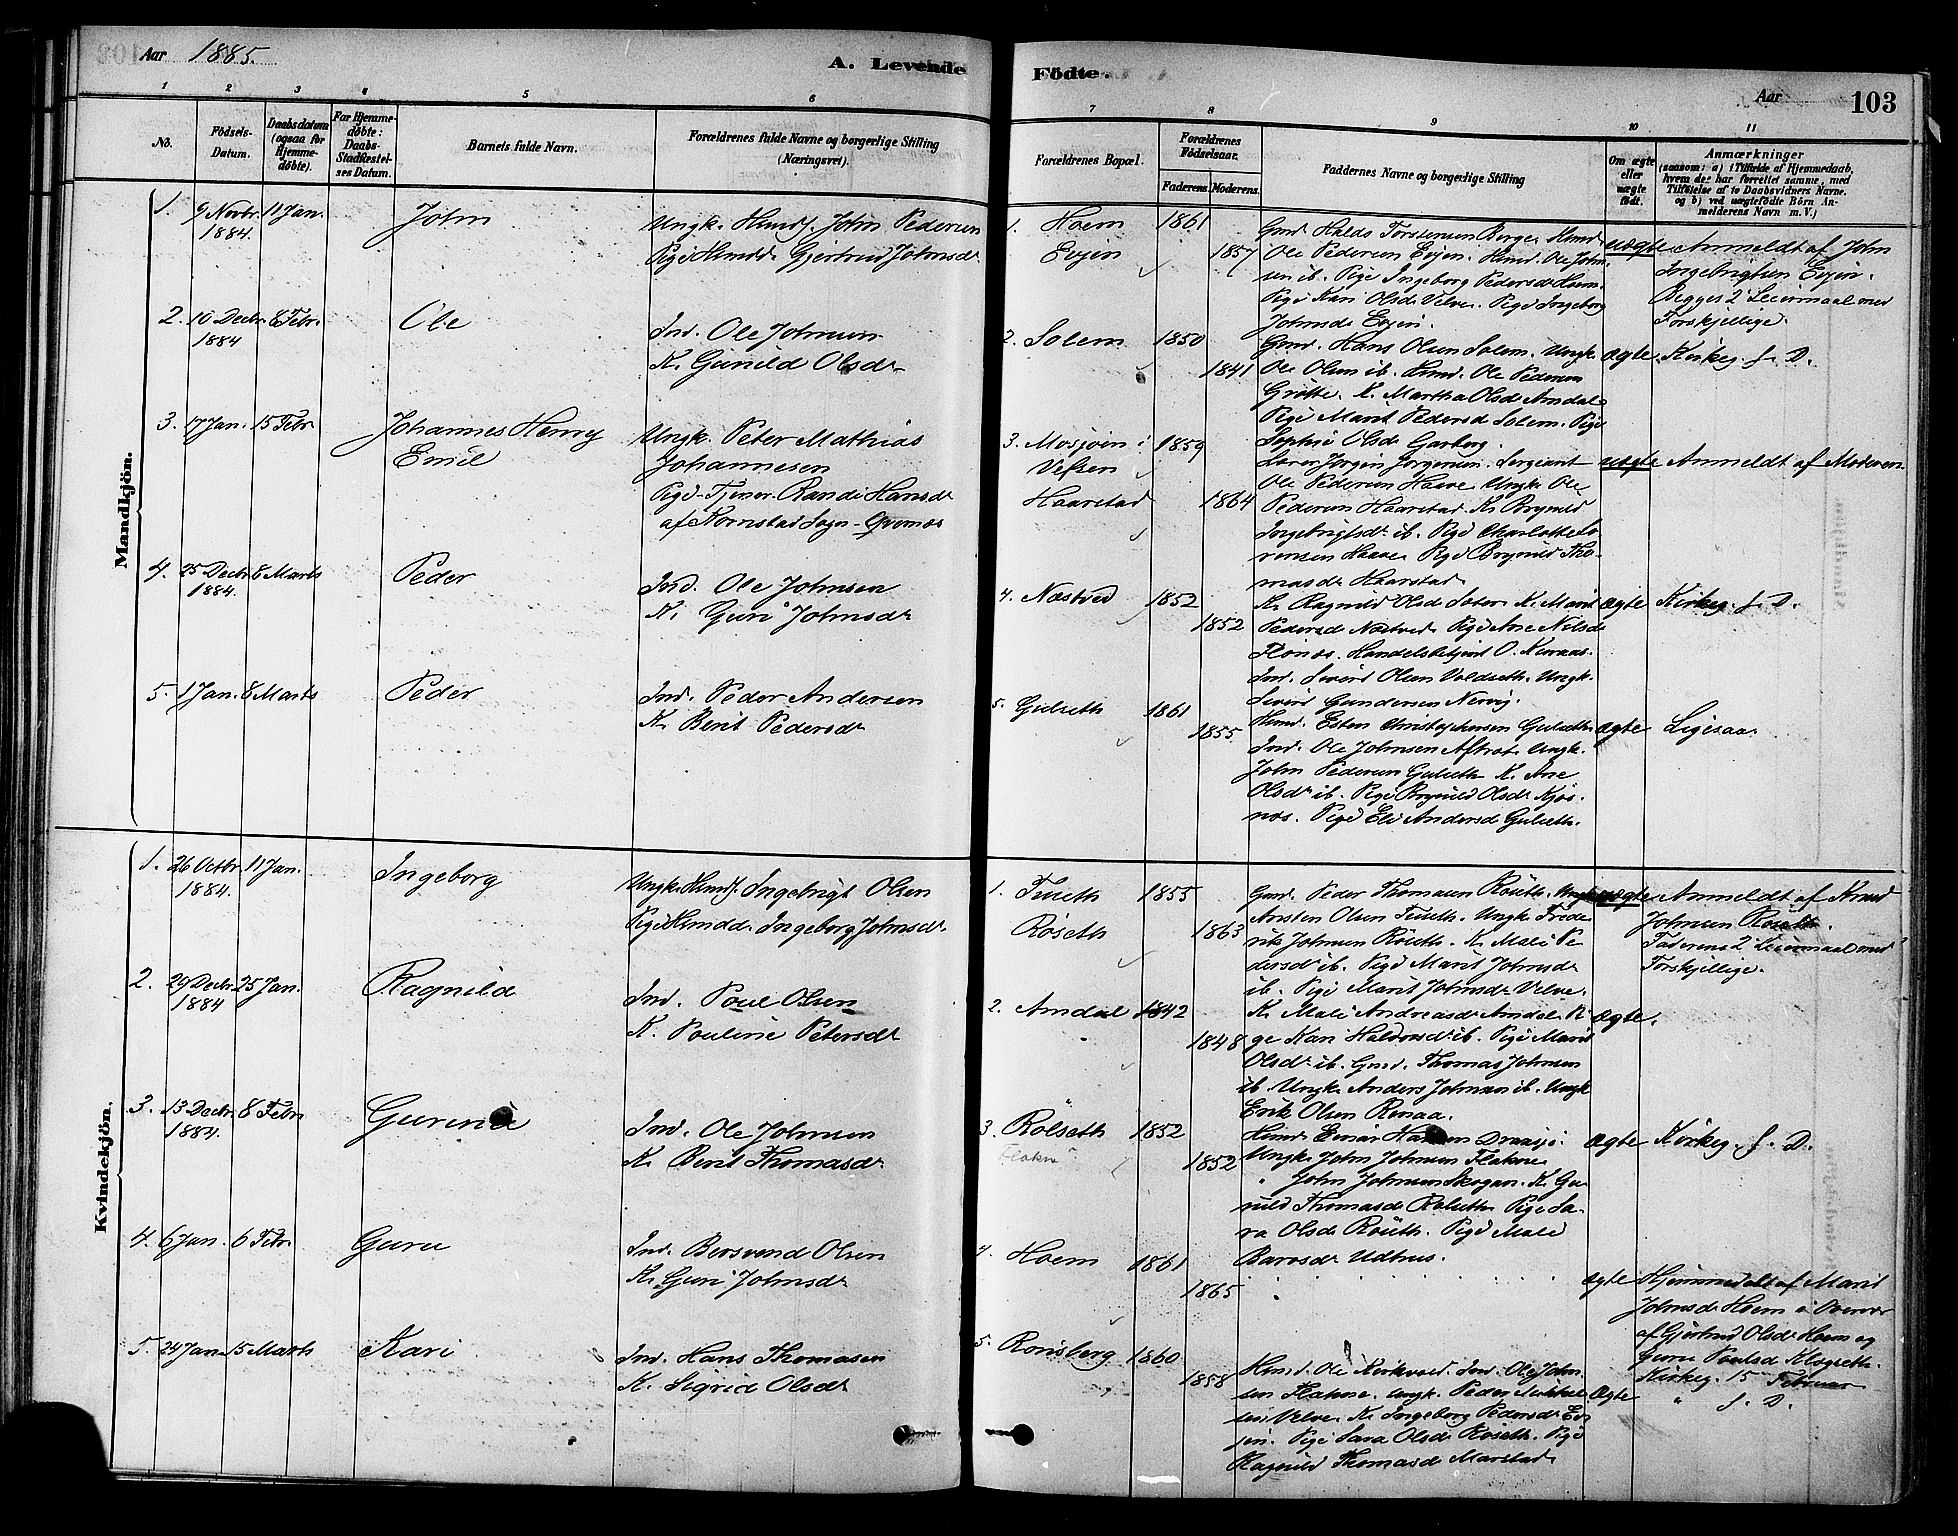 Aar 1885.
A. Levende Födte.
Aar
103
1 2 3 4 5 6 7 8 9 10 11
No.
Födsels-Datum.
Daabsdatum (ogsaa for Hjemmedøbte).
For Hjemmedøbte: Daabs-Stadfæstelses Datum.
Barnets fulde Navn.
Forældrenes fulde Navne og borgerlige Stilling (Næringsvei).
Forældrenes Bopæl.
Forældrenes Födselsaar.
Faderens. Moderens.
Faddernes Navne og borgerlige Stilling
Om ægte eller uægte født.
Anmærkninger
(saasom: a) i Tilfælde af Hjemmedaab, hvem der har forrettet samme, med Tilføielse af to Daabsvidners Navne, og b) ved uægtefødte Börn Anmelderens Navn m. V.)
Mandkjön.
1. 9 Novbr. 1884. 11 Jan. John
Ungk. Hmdf. John Pedersen
Pige Hmdd. Gjertrud Johnsdr
1. Hoem 1861
Evjen 1857
Gmd. Halds Torstensen Berge. Hmd.
Ole Pedersen Evjen. Hmd. Ole John-
sen ib. Pige Ingeborg Pedersdr Hoem.
Pige Kari Olsdr Velve. Pige Ingeborg
Johnsdr Evjen.
uægte Anmeldt af John
Ingebrigtsen Evjen.
Begges 2 Leiermaal med
Forskjellige.
2. 10 Decbr. 1884 8 Febr. Ole
Ind. Ole Johnsen
K. Gunild Olsdr
2. Solem 1850
1841
Gmd. Hans Olsen Solem. Ungk.
Ole Olsen ib. Hmd. Ole Pedersen
Grötte. K. Martha Olsdr Amdal.
Pige Marit Pedersdr Solem. Pige
Sophie Olsdr Garberg.
ægte Kirkeg. f. D.
3. 17 Jan. 15 Febr. Johannes Henry
Emil
Ungk. Peter Mathias
Johannesen
Pige-Tjener Randi Hansdr
af Kornstad Sogn
3. Mosjøen i 1859
Vefsen
Haarstad 1864
Lærer Jørgen Jørgensen. Sergeant
Ole Pedersen Haave. Ungk. Ole
Pedersen Haarstad. K. Brynild
Ingebrigtsdr ib. Pige Charlotte Lo-
rensen Haave. Pige Brynild Tho-
masdr Haarstad.
uægte Anmeldt af Moderen
4. 25 Decbr. 1884. 8 Marts Peder
Ind. Ole Johnsen
K. Guri Johnsdr
4. Næstved 1852
1852
K. Ragnild Olsdr Sæter. K. Marit
Pedersdr Næstved. Pige Ane Nilsdr
Flønæs. Handelsbetjent O. Kuraas.
Ind. Sivert Olsen Voldseth. Ungk.
Sivert Gundersen Nervig.
ægte Kirkeg. f. D.
5. 1 Jan. 8 Marts Peder
Ind. Peder Andersen
K. Berit Pedersdr
5. Gulseth 1861
1855
Hmd. Esten Christophersen Gulseth.
Ind. Ole Johnsen Aftret. Ungk.
John Pedersen Gulseth. K. Ane
Olsdr ib. Pige Brynild Olsdr Kjøs-
næs. Pige Eli Andersdr Gulseth.
ægte Ligesaa.
Kvindekjön.
1. 26 Octbr. 1884. 11 Jan. Ingeborg
Ungk. Hmdf. Ingebrigt Olsen
Pige Hmdd. Ingeborg Johnsdr
1. Tuseth 1855
Röseth 1863
Gmd. Peder Thomasen Röseth. Ungk.
Arsten Olsen Tuseth. Ungk. Frede-
rik Johnsen Röseth. K. Mali Pe-
dersdr ib. Pige Marit Johnsdr
ib. Pige Marit Johnsdr Velve.
uægte Anmeldt af
Johnsen Röseth.
Faderens 2 Leiermaal med
Forskjellige.
2. 29 Decbr. 1884 25 Jan. Ragnild
Ind. Poul Olsen
K. Pauline Petersdr
2. Amdal 1842
1848
K. Mali Andreasdr Amdal. Pi-
ge Kari Haldorsdr ib. Pige Marit
Olsdr ib. Gmd. Thomas Johnsen
ib. Ungk. Anders Johnsen ib. Ungk.
Erik Olsen Renaa.
ægte.
3. 13 Decbr. 1884. 8 Febr. Gurine
Ind. Ole Johnsen
K. Berit Thomasdr
3. Rolseth 1852
Flakne 1852
Hmd. Einar Hansen Draasjø.
Ungk. John Johnsen Flakne
" John Johnsen Skogan. K. Gu-
nild Thomasdr Rolseth. Pige Sa-
ra Olsdr Röseth. Pige Mali
Barosdr Udhus.
ægte Kirkeg. f. D.
4. 6 Jan. 6 Febr. Guru
Ind. Bersvend Olsen
K. Guri Johnsdr
4. Hoem 1861
1865
ægte Hjemmedøbt af Marit
Johnsdr Hoem i Overvær
af Gjertrud Olsdr Hoem og
Guru Poulsdr Klegseth.
Kirkeg. 15 Februar
5. 24 Jan. 15 Marts Kari
Ind. Hans Thomasen
K. Sigrid Olsdr
5. Rønsberg 1860
1858
Hmd. Ole Kirkvold. Ind. Ole John-
sen Flakne. Ungk. Peder Mikkel-
sen Velve. K. Ingeborg Pedersdr Ev-
jen. Pige Sara Olsdr Röseth. Pige
Ragnild Thomasdr Marstad.
ægte " f. D.